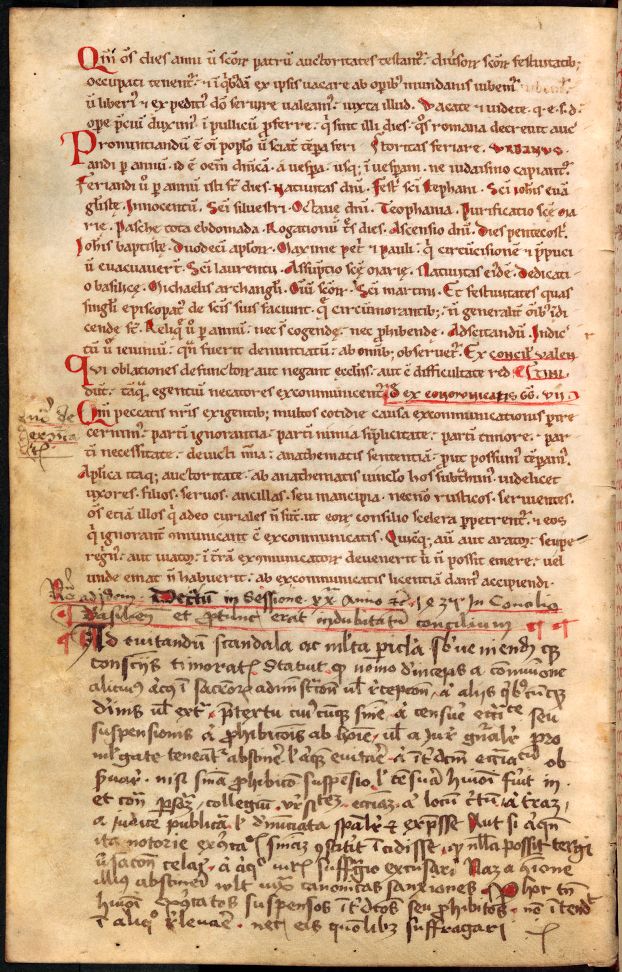 Qm̄ oēs dies anni ⁊ sc̄oꝝ patrū auctoritates testant᷑. diuersoꝝ sc̄oꝝ festiuitatibꝰ
occupati tenent᷑. ⁊ ī qͥbꝰdā ex ip̄sis uacare ab opibꝰ mundanis iubem᷑
ū liberiꝰ ⁊ expeditiꝰ dō seruire ualeamꝰ. iuxta illud. Vacate ⁊ uidete. q. e. s. d.
ope p̄ciū duximꝰ ī puplicū ꝓferre. q̄ sint illi dies. qͦs romana decreuit auc
Pronuntiandū ē oī poplo ū sciat tēpa feri toritas feriare. URBANUS.
andi ꝑ annū. id ē oēm dn̄icā. a uespa usqꝫ ī uespam. ne iudaismo capiant᷑.
Feriandi ū ꝑ annū isti s̄t dies. Natiuitas dn̄i. Fest᷑ sc̄i stephani. Sc̄i ioh̄is euā
gliste. Innocentū. Sc̄i siluestri. Octaue dn̄i. Teophania. Purificatio sc̄e ma
rie. Pasche tota ebdomada. Rogationū tͥs dies. Ascensio dn̄i. Dies pentecost.
Ioh̄is baptiste. Duodeci ap̄loꝝ. Maxime pet᷑ ⁊ pauli. qͥ circūcisionē ⁊ p̄puciū
ū euacuauert̄. Sc̄i laurentii. Assūptio sc̄e marie. Natiuitas eiꝰdē. Dedicati
o basilice. Michaelis archangl̄i. Oīū sc̄oꝝ. Sc̄i martini. Et festiuitates quas
singl̄i episcopat᷑ de sc̄is suis faciunt. q̄ circūmorantibꝫ. ī generalit̄ oībꝰ īdi
cende s̄t. Reliqͥ ū ꝑ annū. nec s̄ cogende. nec ꝓhibende. Adserendū. Indic
tū ū ieiuniū. qn̄ fuerit denuntiatū. ab omībꝫ obseruet᷑. Ex concil᷑ valen
Qui oblationes defunctoꝝ aut negant ecclīis. aut ē difficultate red tini
dūt. tāqͣ egentiū necatores excommunicent᷑. id ex cōmonicatis Gō. vii
Qm̄ peccatis nr̄is exigentibꝫ multos cotidie causa excommunicationis ꝑire
cernimꝰ. partī ignorantia. partī nimia siplicitate. partī timore. par
tī necessitate. deuicti mīa. anathematis sententiā. ꝓut possumꝰ tēpamꝰ.
Aplica itaqꝫ auctoritate. ab anathematis uinclo hos subtͣhimꝰ. uidelicet
uxores. filios. seruos. ancillas. seu mancipia. necnō rusticos. seruientes.
oēs etiā illos qͥ adeo curiales n̄ s̄t. ut eoꝝ consilio scelera perpetrent᷑. ⁊ eos
qͥ ignorant ꝯmunicant ē excommunicatis. Quicqꝫ aū aut aratoꝝ. seu pe
regͥnꝰ. aut uiatoꝝ ī t̄rā excōmunicatoꝝ deuenerit ū n̄ possit emere. uel
unde emat n̄ habuerit. ab excommunicatis licentiā damꝰ accipiendi.
Decretū in Sessione xx Anno dn̄i 1435 In Concilio
Basilien̄ et ꝓtunc erat indubitatū concilium
Ad euitandum scandala ac ml̄ta pic̄la subueniendumqꝫ
consciis timorat᷑ Statuit qͩ nemo deinceps a cōmūione
alicuiꝰ a sacͬoꝝ administͣtion ul̄ recepcon̄ a aliis qͥbꝰcūqꝫ
diuinis ul̄ extͣ p̄textu cuiꝰcūqꝫ sn̄ie a censure ecc̄tice seu
suspensionis a ꝓhibicōis ab hoīe. ul̄ a iure gn̄al᷑ pro
ml̄gate teneat᷑ abstine᷑ l̄ aliqͤ euitare. a īt̄dcm̄ eccīasticū ob
s̄uar. nisi sn̄ia ꝓhibicō suspēsio l̄ cēsura hmōi fūt in
et con̄ p̄sonā, collegiū, vn̄isitatē, ecc̄iaꝫ. a locū c̄tū a
a iudice publicata l̄ denūciata spāl᷑ & exp̄sse Aut si aliqͤ
ita notorie excōicat sn̄iaꝫ ꝯstitit īcidisse, qͩ nl̄la possit tergi
ūsacon̄ celari. a aliqͦ iuris suffͣgio excusari Naꝫ a cōione
illiꝰ abstinē uolt iuxͣ canonicas sanxiones. Per hoc tn̄
hmōi excōicatos suspensos īt̄dictos seu ꝓhibitos nō intēdit
ī aliqͦ releuare. nec eis quōlibꝫ suffragari